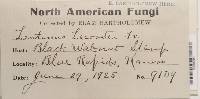 E. BARTHOLOMEW HERB.
North American Fungi
Collected by ELAM BARTHOLOMEW
Lentinus Lecomtei Fr.
Host: Black Walnut Stump
Locality: Blue Rapids, Kansas
Date: June 29, 1925 No. 9179